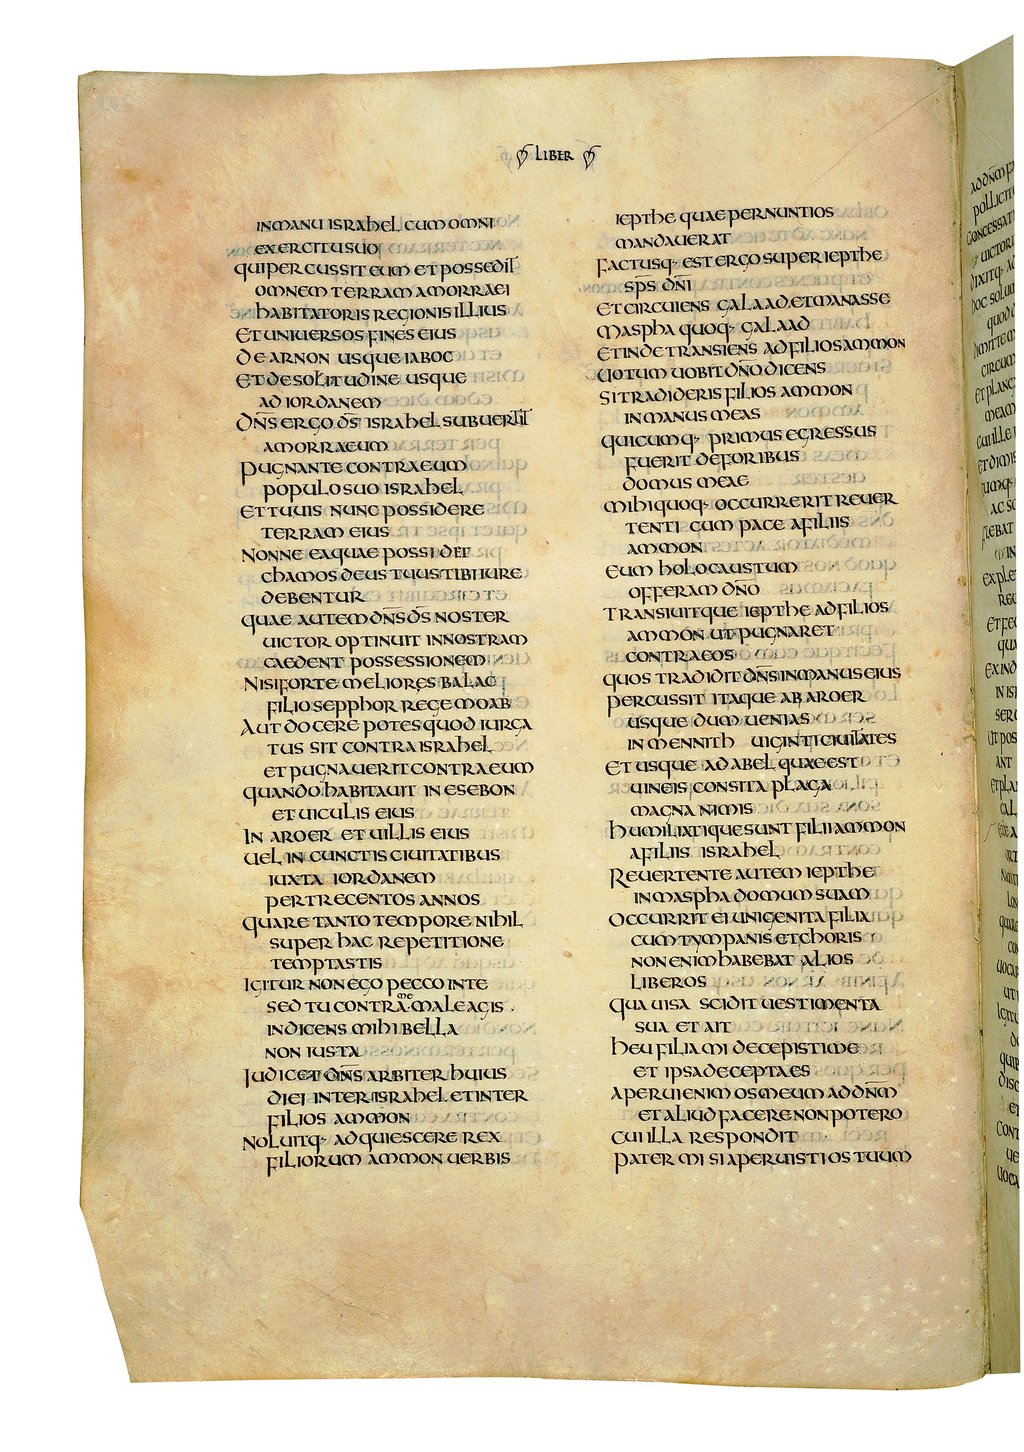 LIBER
IN MANU ISRAHEL CUM OMNI
EXERCITU SUO
QUI PERCUSSIT EUM ET POSSEDIT
OMNEM TERRAM AMORRAEI
HABITATORIS REGIONIS ILLIUS
ET UNIVERSOS FINES EIUS
DE ARNON USQUE IABOC
ET DE SOLITUDINE USQUE
AD IORDANEM
DN̄S ERGO DS̄ ISRAHEL SUBUERTIT
AMORRAEUM
PUGNANTE CONTRA EUM
POPULO SUO ISRAHEL
ET TU UIS NUNC POSSIDERE
TERRAM EIUS
NONNE EA QUAE POSSIDET
CHAMOS DEUS TUUS TIBI IURE
DEBENTUR
QUAE AUTEM DN̄S DS̄ NOSTER
UICTOR OPTINUIT IN NOSTRAM
CAEDENT POSSESSIONEM
NISI FORTE MELIORES BALAC
FILIO SEPPHOR REGE MOAB
AUT DOCERE POTES QUOD IURGA
TUS SIT CONTRA ISRAHEL
ET PUGNAUERIT CONTRA EUM
QUANDO HABITAUIT IN ESEBON
ET UICULIS EIUS
IN AROER ET UILLIS EIUS
UEL IN CUNCTIS CIUITATIBUS
IUXTA IORDANEM
PER TRECENTOS ANNOS
QUARE TANTO TEMPORE NIHIL
SUPER HAC REPETITIONE
TEMPTASTIS
IGITUR NON EGO PECCO IN TE
SED TU CONTRA ME MALE AGIS
INDICENS MIHI BELLA
NON IUSTA
IUDICET DN̄S ARBITER HUIUS
DIEI INTER ISRAHEL ET INTER
FILIOS AMMON
NOLUITQ· ADQUIESCERE REX
FILIORUM AMMON UERBIS
IEPTHE QUAE PER NUNTIOS
MANDAUERAT
FACTUSQ· EST ERGO SUPER IEPTHE
SPS̄ DN̄I
ET CIRCUIENS GALAAD ET MANASSE
MASPHA QUOQ· GALAAD
ET INDE TRANSIENS AD FILIOS AMMON
UOTUM UOBIT DN̄O DICENS
SI TRADIDERIS FILIOS AMMON
IN MANUS MEAS
QUICUMQ· PRIMUS EGRESSUS
FUERIT DE FORIBUS
DOMUS MEAE
MIHI QUOQ· OCCURRERIT REUER
TENTI CUM PACE A FILIIS
AMMON
EUM HOLOCAUSTUM
OFFERAM DN̄O
TRANSIUITQUE IEPTHE AD FILIOS
AMMON UT PUGNARET
CONTRA EOS
QUOS TRADIDIT DN̄S IN MANUS EIUS
PERCUSSIT ITAQUE AB AROER
USQUE DUM UENIAS
IN MENNITH UIGINTI CIUITATES
ET USQUE AD ABEL QUAE EST
UINEIS CONSITA PLAGA
MAGNA NIMIS
HUMILIATIQUE SUNT FILII AMMON
A FILIIS ISRAHEL
REUERTENTE AUTEM IEPTHE
IN MASPHA DOMUM SUAM
OCCURRIT EI UNIGENITA FILIA
CUM TYMPANIS ET CHORIS
NON ENIM HABEBAT ALIOS
LIBEROS
QUA UISA SCIDIT UESTIMENTA
SUA ET AIT
HEU FILIA MI DECEPISTI ME
ET IPSA DECEPTA ES
APERUI ENIM OS MEUM AD DN̄M
ET ALIUD FACERE NON POTERO
CUI ILLA RESPONDIT
PATER MI SI APERUISTI OS TUUM